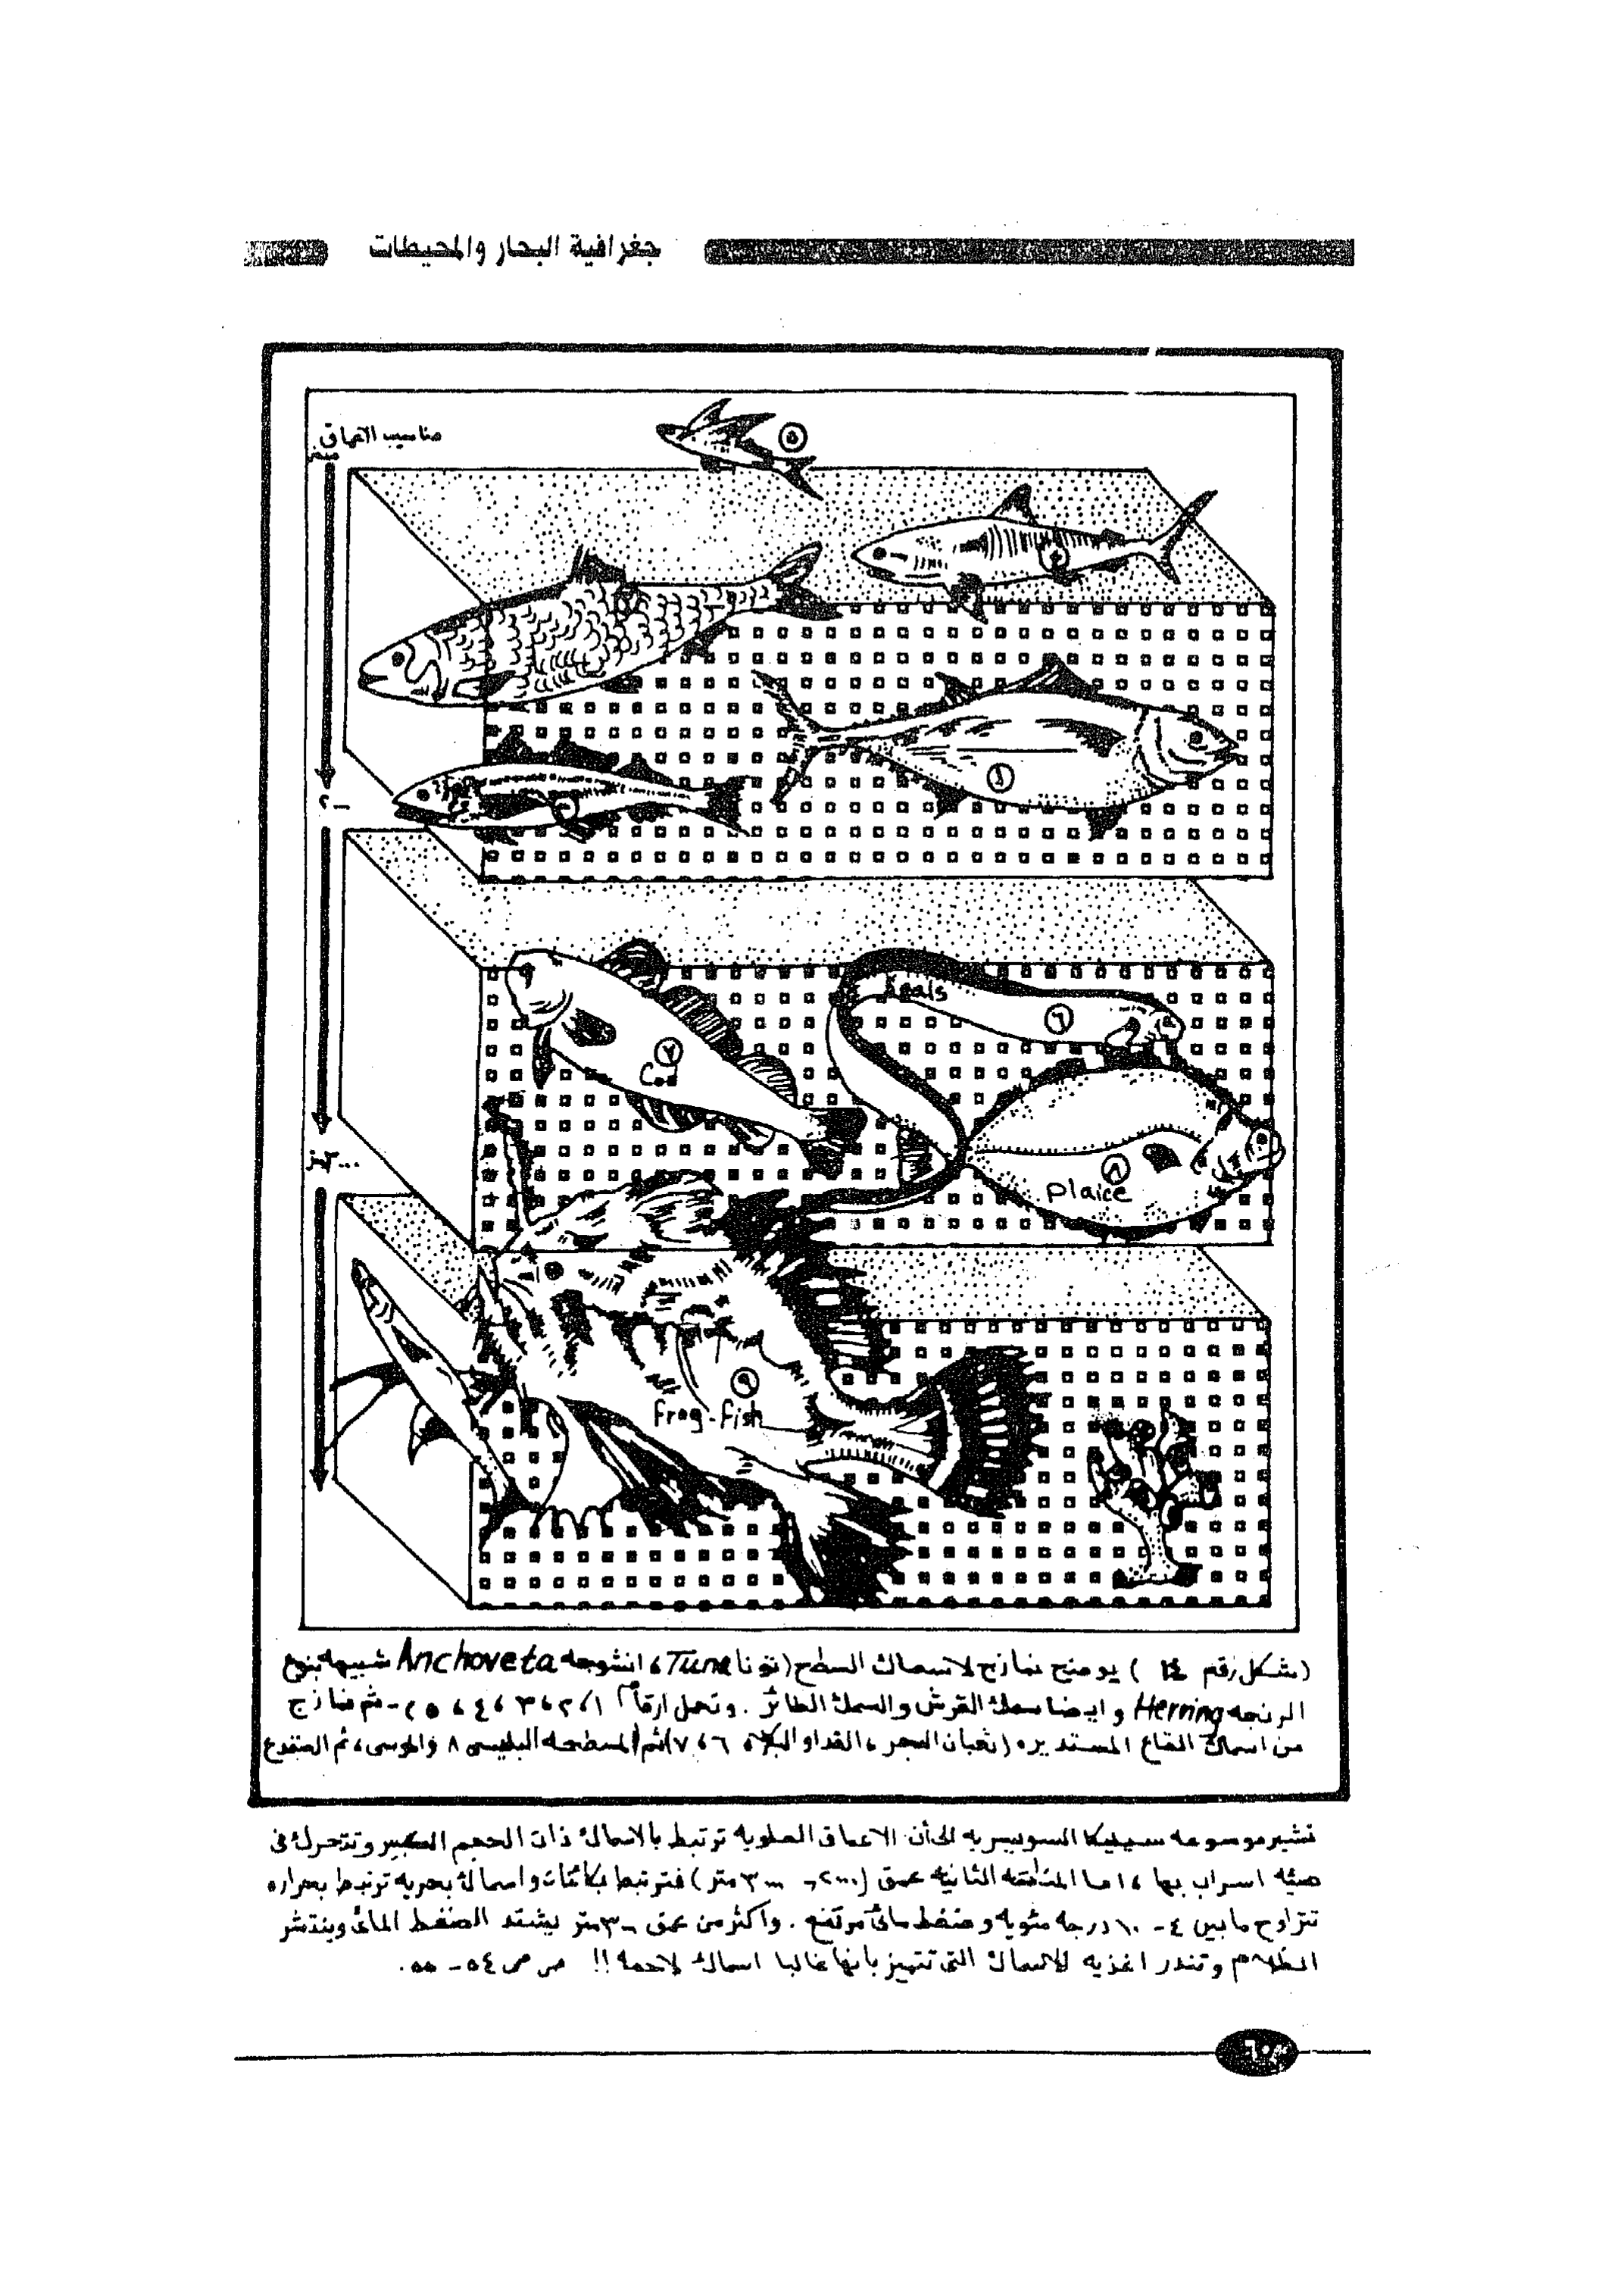 جغرافية البحار والمحيطات
مناسيب الاعماق
متر
٥
٢
١
Aeals
٦
٧
Cod
٨
Plaice
٩
frog-fish
(شكل رقم ١٤ ) يوضح نماذج لاسماك السطح (تونا Tuna، انشوجه Anchoveta شبيهه بنوع
الرنجه Herring وايضا سمك القرش والسمك الطائر. وتحمل ارقام ١، ٢، ٣، ٤، ٥ - ثم نماذج
من اسماك القاع المستديره (ثعبان البحر، القد او البكلاه ٦، ٧) ثم المسطحه البليس ٨ والموسى، ثم الضفدع
تشير موسوعه سيليكا السويسريه الى أن الاعماق العلويه ترتبط بالاسماك ذات الحجم الكبير وتتحرك فى
هيئه اسراب بها، اما المنطقه الثانيه عمق (٢٠٠٠ - ٣٠٠٠ متر) فترتبط بكائنات واسماك بحريه ترتبط بحراره
تتراوح مابين ٤ - ١٠ درجه مئويه وضغط مائى مرتفع. واكثر من عمق متر يشتد الضغط المائى وينتشر
الظلام وتندر اغذيه للاسماك التى تتميز بانها غالبا اسماك لاحمه !! ص ص ٥٤ - ٥٥.